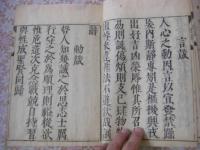 言箴
人心之動因言以宣發禁躁
妄內斯靜專矧是樞機興戎
出好吉凶榮辱惟其所召傷
易則誕傷煩則支己肆物忤
出悖來違非法不道欽哉訓
辭
動箴
哲人知幾誠之於思志士厲
行守之於為順理則裕從欲
惟危造次克念戰兢自持習
與性成聖賢同歸